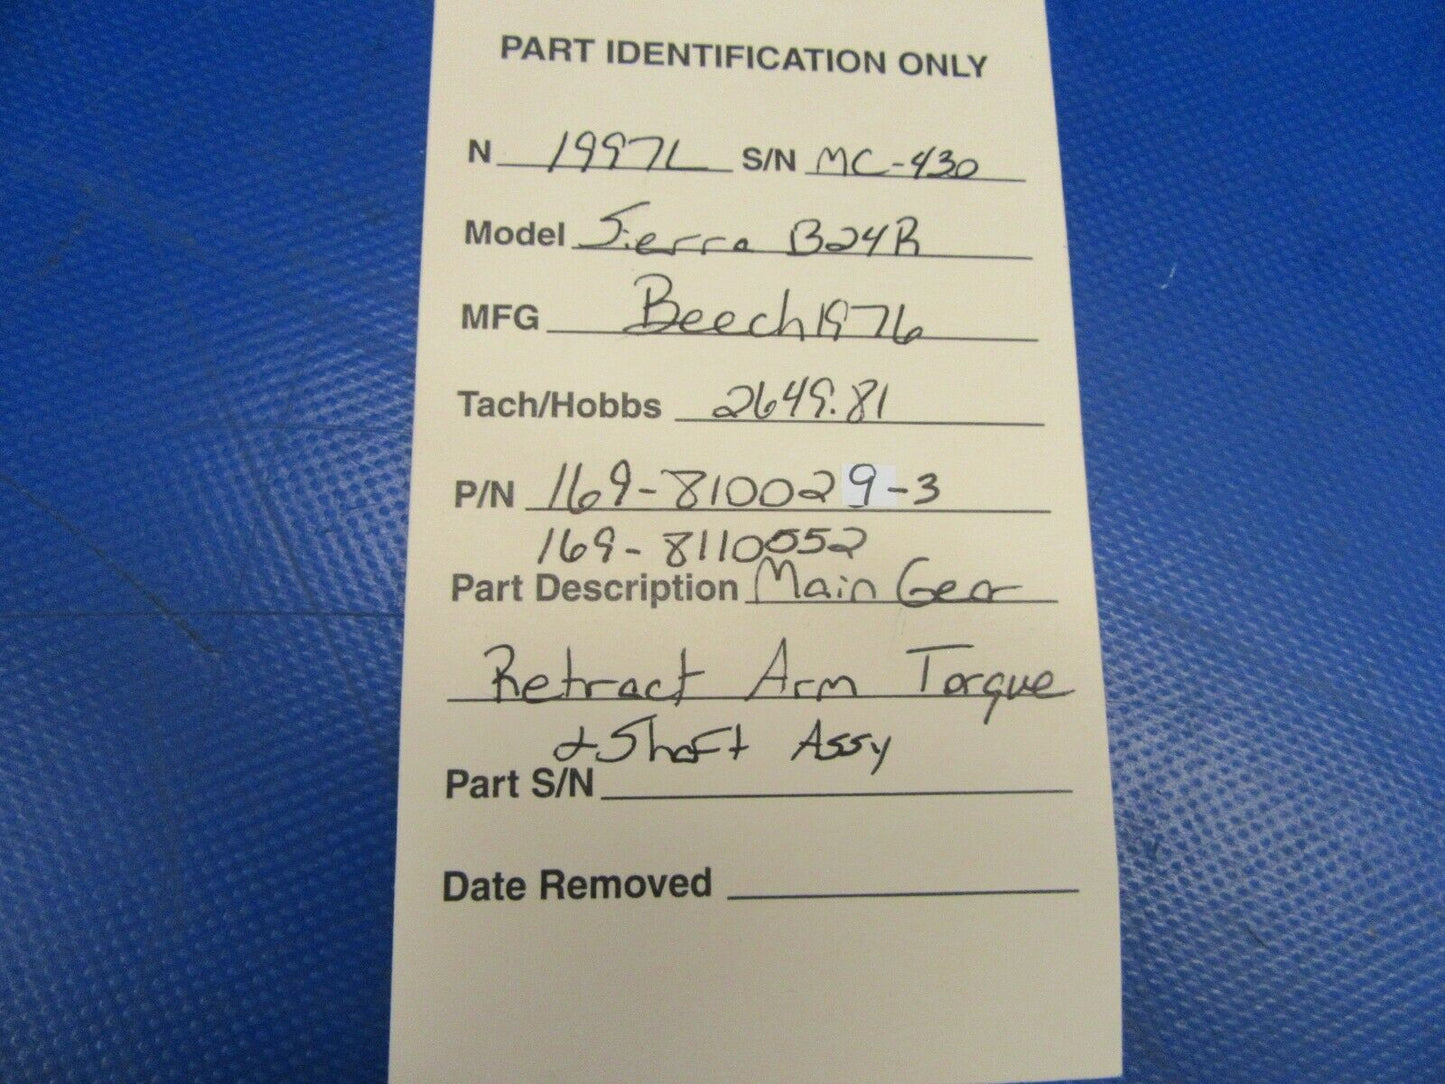 PART IDENTIFICATION ONLY
N 1997L S/N MC-430
Model Sierra B24R
MFG Beech 1976
Tach/Hobbs 2649.81
P/N 169-810029-3
169-8110052
Part Description Main Gear
Retract Arm Torque
& Shaft Assy
Part S/N
Date Removed